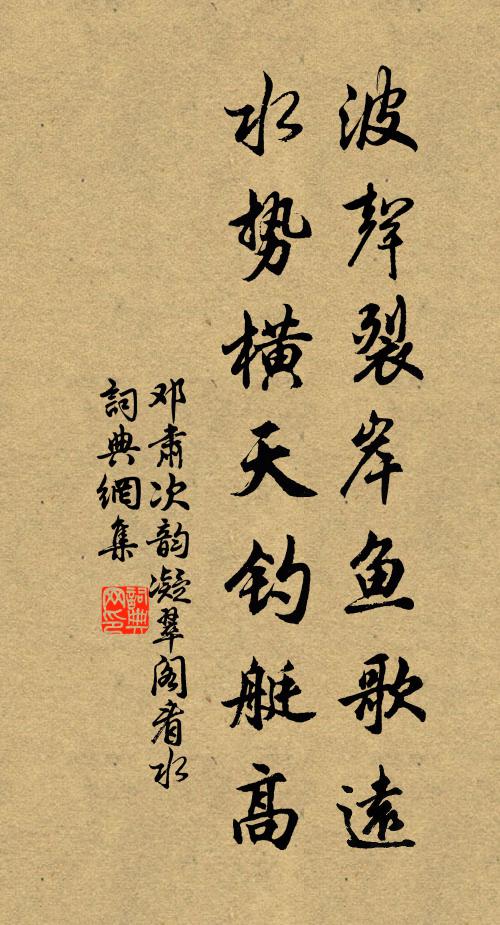 波聲裂岸鱼歌遠
水势横天钓艇高
邓肃次韵凝翠阁看水
詞典網集
詞典网印